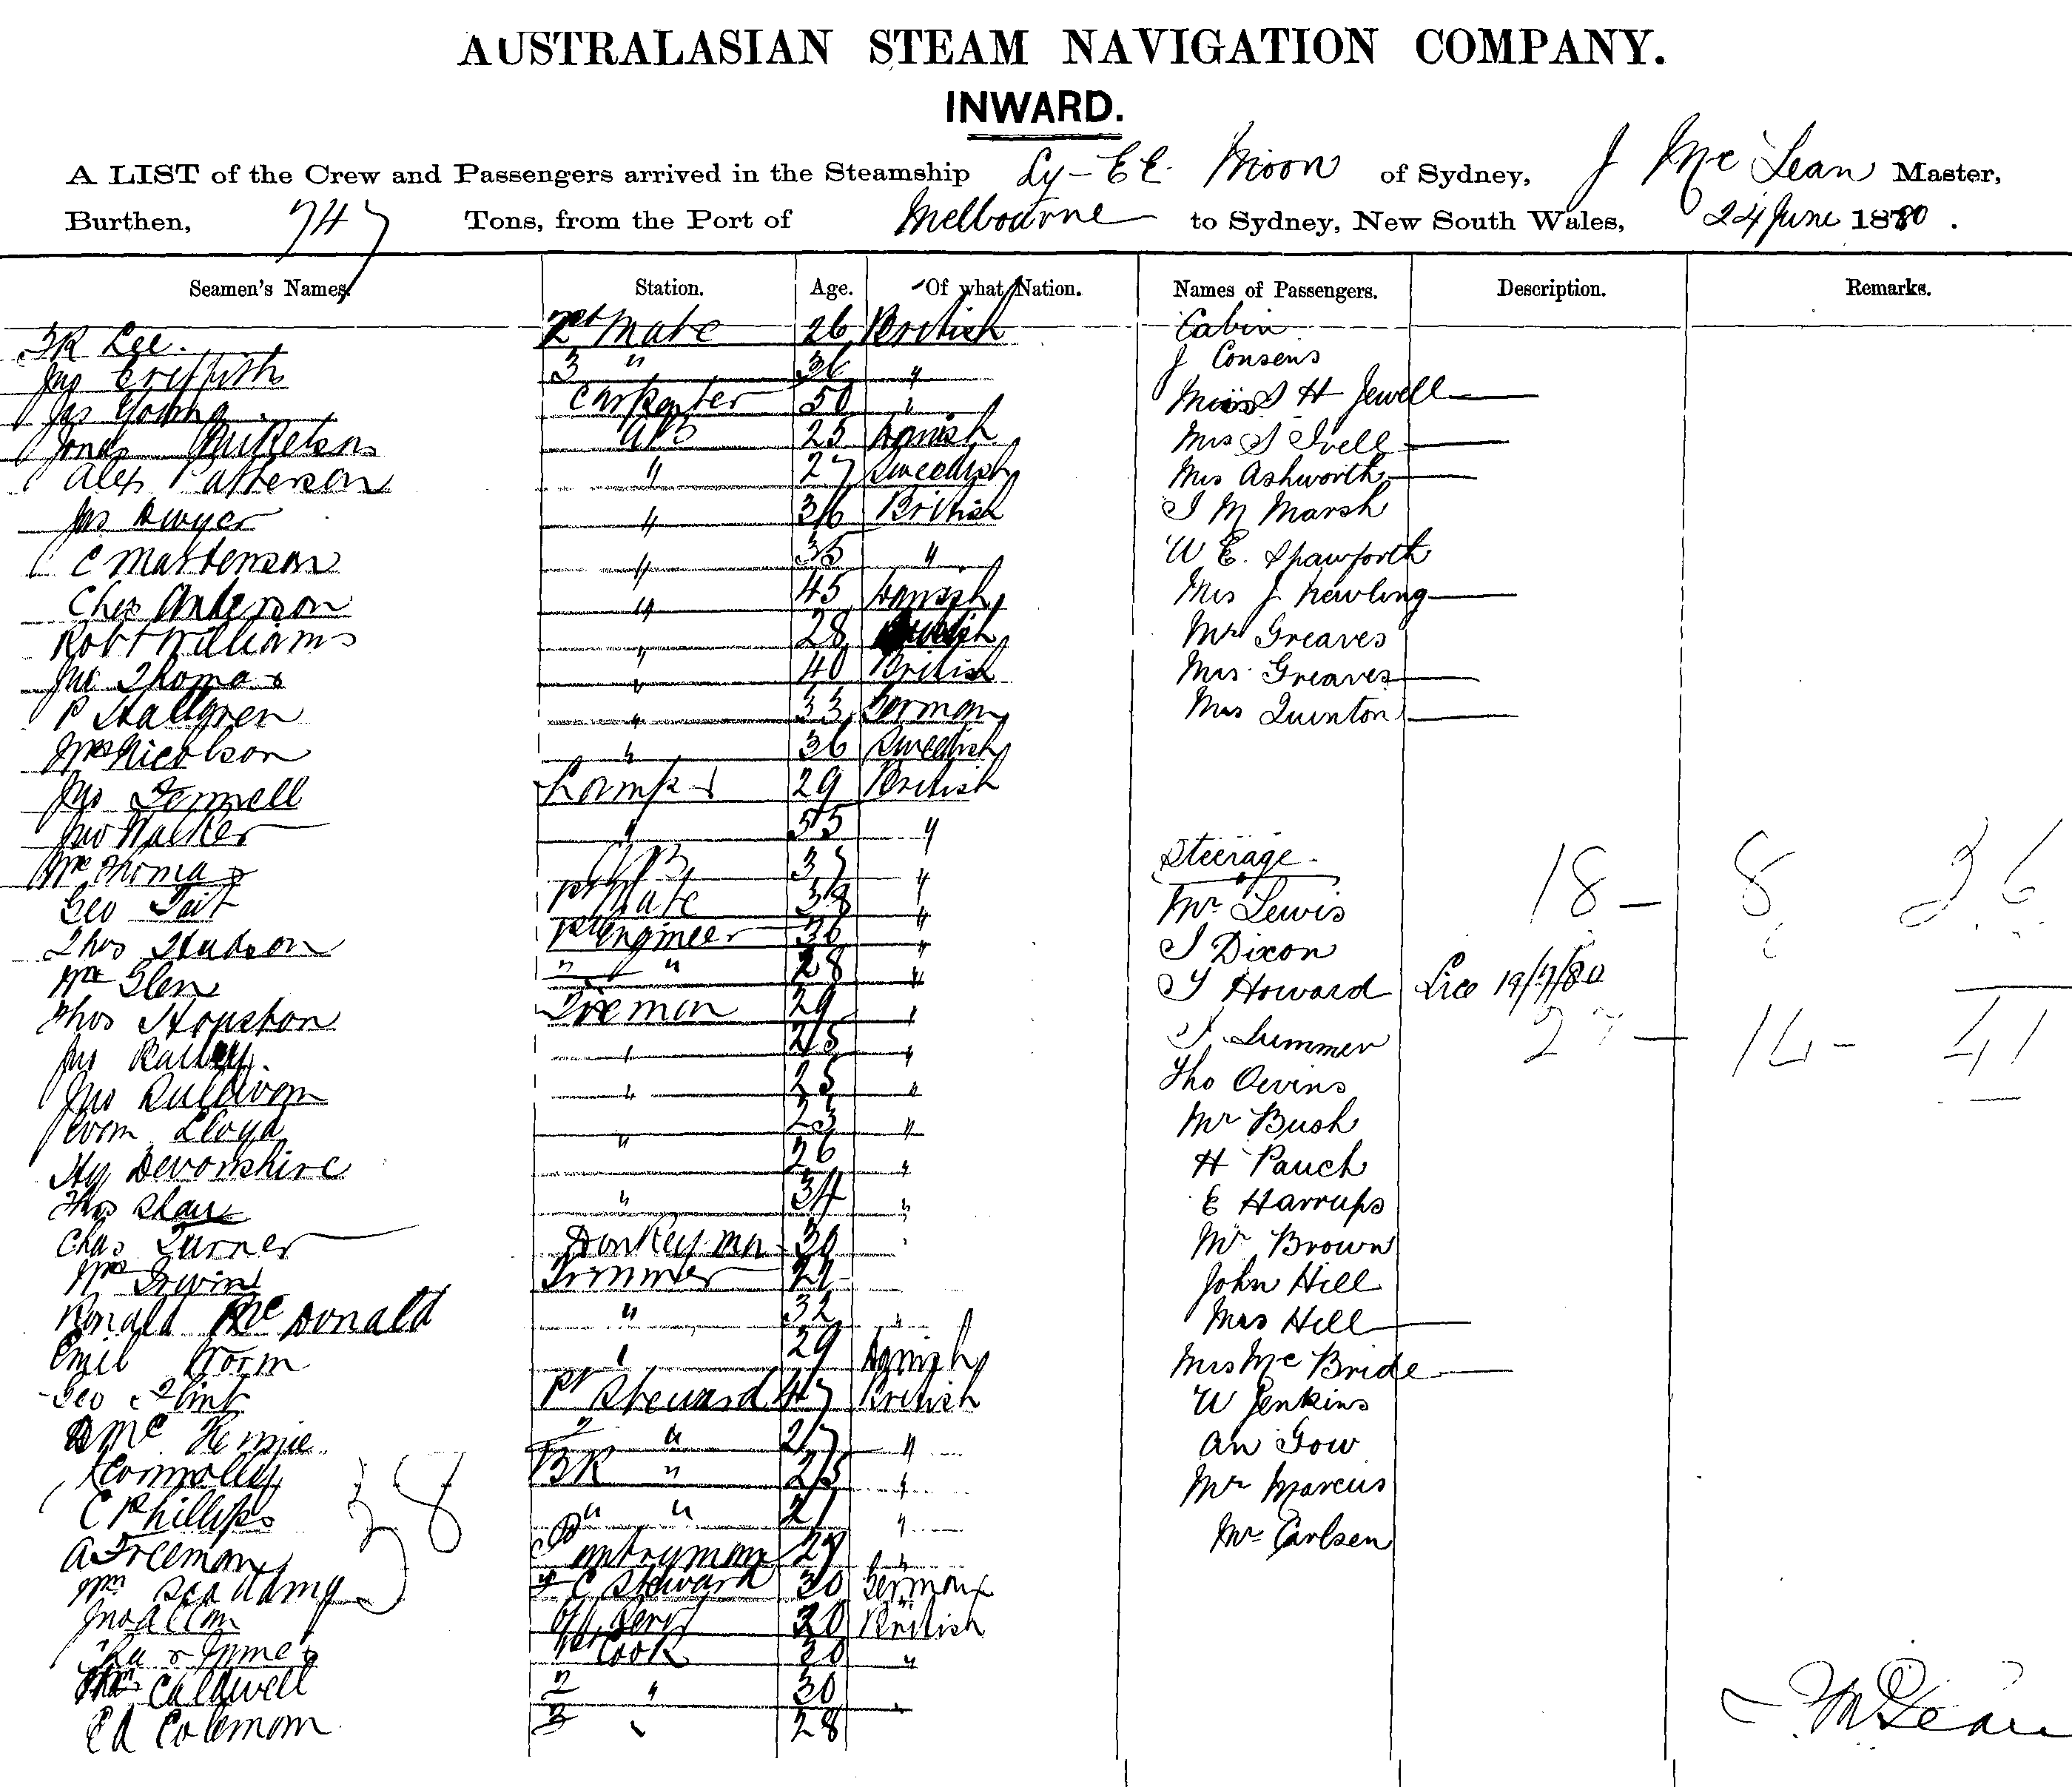 AUSTRALASIAN STEAM NAVIGATION COMPANY.
INWARD.
A LIST of the Crew and Passengers arrived in the Steamship Ly-EE Moon of Sydney, J McLean Master,
Burthen, 747 Tons, from the Port of Melbourne to Sydney, New South Wales, 24 June 1880.
Seamen's Names. Station. Age. Of what Nation. Names of Passengers. Description. Remarks.
Lee. Mate 26 British Cabin
Jno Griffith 3 " 36 " J Consens
Jas Young Carpenter 50 " Miss H Jewell
AB 25 Danish Mrs
Alex Patterson " 27 Swedish Mrs Ashworth
Jas Dwyer " 36 British M Marsh
C Martenson " 35 " W E. Spawforth
Chas Anderson " 45 Danish Mrs J Newling
Robt Williams " 28 Mr Greaves
Jno Thomas " 40 British Mrs Greaves
P Hallgren " 33 German Mrs Quinton
Nicolson " 36 Swedish
Jas Fennell Lamps 29 British
Jno Walker " 55 "
Wm Thomas AB 37 " Steerage
Geo Tait 1st Mate 38 " Mr Lewis 18 - 8 26
Thos Hudson 1st Engineer 36 " Dixon
Wm Glen " " 28 " Howard 19/7/80
Thos Houston Fireman 29 " Summer 27 - 14 - 41
Jas " 25 " Tho
Jno Sullivan " 25 " Mr Bush
Wm Lloyd " 23 " H Pauch
Hy Devonshire 26 " E Harrups
Thos " 34 " Mr Brown
Chas Turner Donkeyman 30 " John Hill
Wm Irwin Trimmer Mrs Hill
Ronald McDonald " 32 " Mrs McBride
Emil Worm " 29 Danish W Jenkins
Geo Flint 1st Steward 47 British Gow
Mc 2 " 27 " Mr Marcus
Connolly BR " 25 " Mr Carlsen
C Phillips " " 21 "
38
A Freeman Pantryman 27 "
Wm C Steward 30 German
Jno Allan 20 British
1st Cook 30 "
Wm Caldwell 2 " 30 "
Ed Coleman 3 " 28
McLean